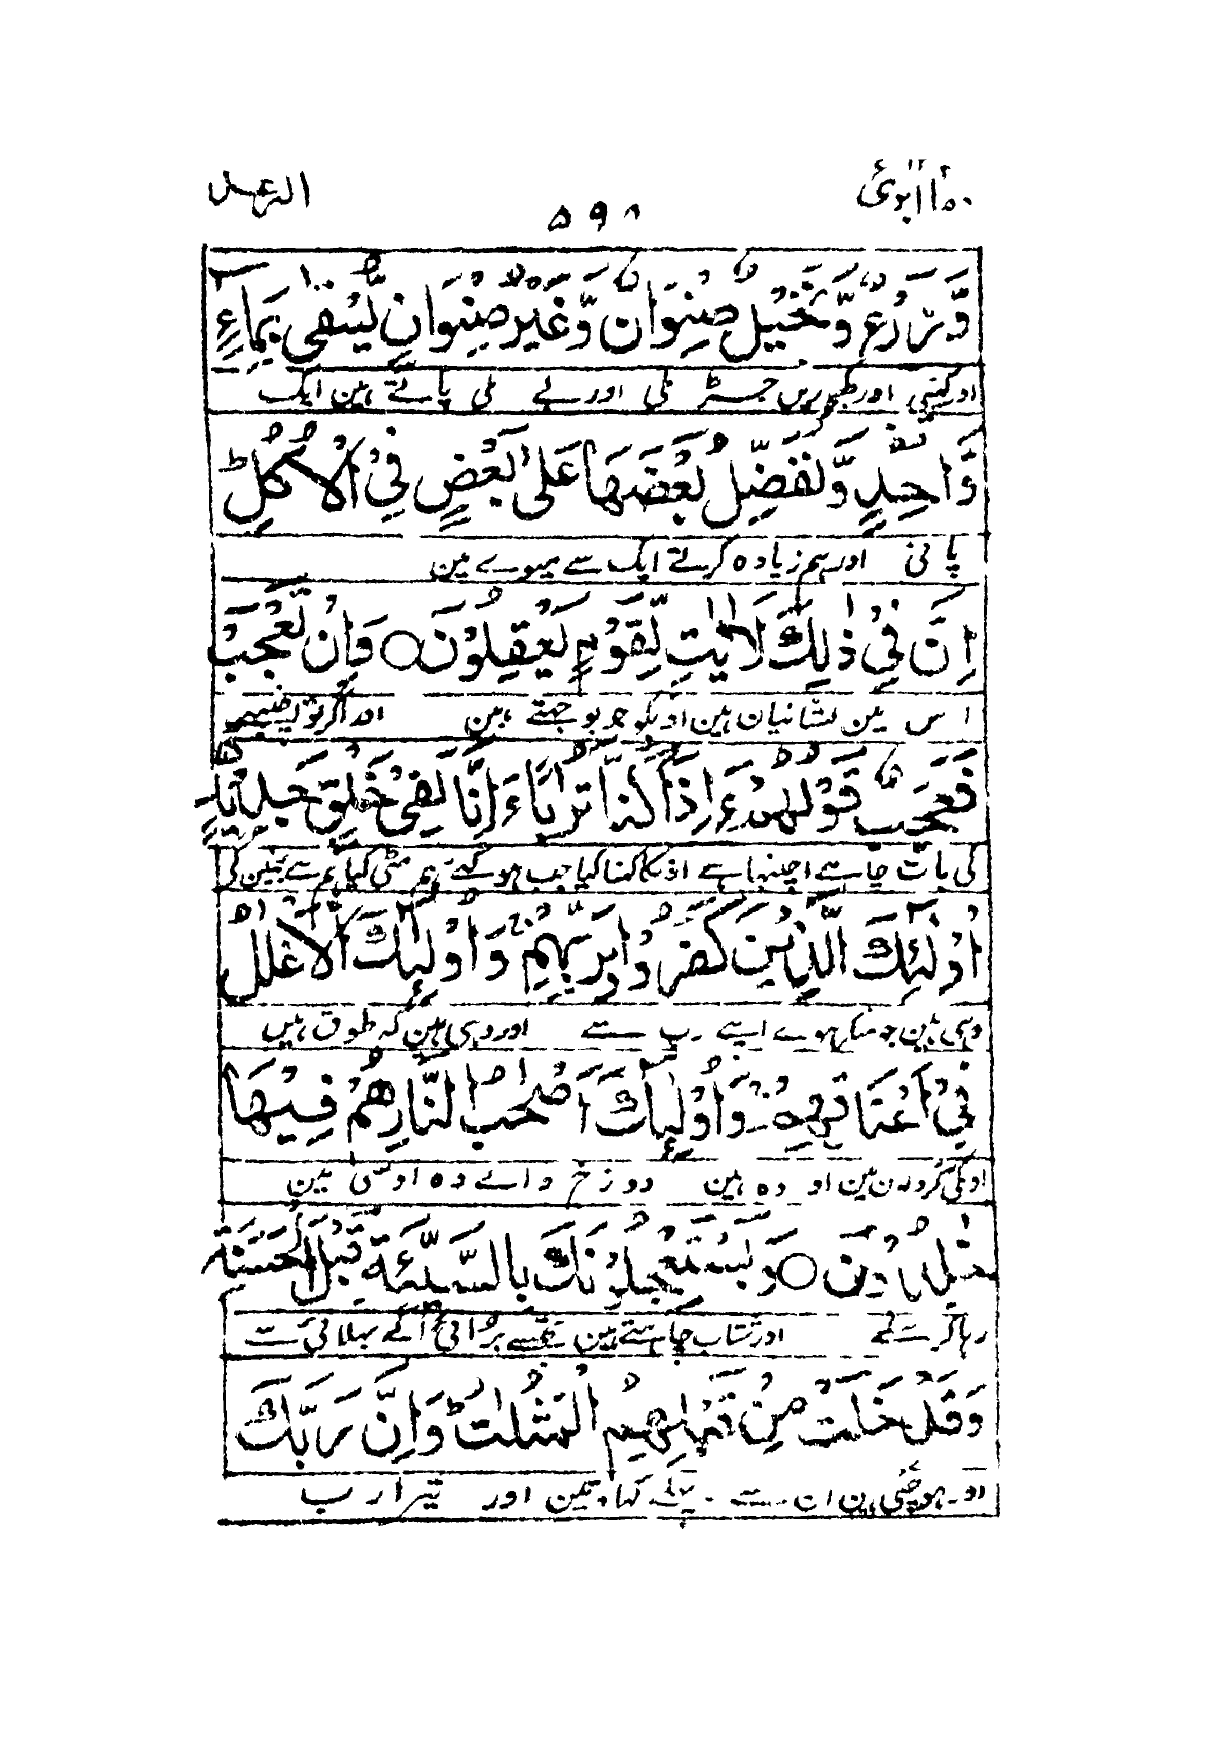 وما ابرئ
۵۹۸
الرعد
وَّزَرْعٌ وَّنَخِيْلٌ صِنْوَانٌ وَّغَيْرُ صِنْوَانٍ يُّسْقٰى بِمَآءٍ
اور کھیتی اور کھجوریں جڑ ملی اور بے ملی پاتے ہین ایک
وَّاحِدٍ وَّنُفَضِّلُ بَعْضَهَا عَلٰى بَعْضٍ فِي الْاُكُلِ ط
پانی اور ہم زیادہ کرتے ایک سے میوے مین
اِنَّ فِيْ ذٰلِكَ لَاٰيٰتٍ لِّقَوْمٍ يَّعْقِلُوْنَ ○ وَاِنْ تَعْجَبْ
اس مین نشانیان ہین اونکو جو بوجھتے ہین اور اگر تو
فَعَجَبٌ قَوْلُهُمْ ءَاِذَا كُنَّا تُرَابًا ءَاِنَّا لَفِيْ خَلْقٍ جَدِيْدٍ
کی بات چاہے اچنبھا ہے اونکا کہنا کیا جب ہو گئے ہم مٹی کیا ہم
اُولٰٓئِكَ الَّذِيْنَ كَفَرُوْا بِرَبِّهِمْ وَاُولٰٓئِكَ الْاَغْلٰلُ
وہی ہین جو منکر ہوے اپنے رب سے اور وہی ہین کہ طوق ہیں
فِيْ اَعْنَاقِهِمْ وَاُولٰٓئِكَ اَصْحٰبُ النَّارِ هُمْ فِيْهَا
اونکی گردنون مین اور وہ ہین دوزخ والے وہ اوسی مین
خٰلِدُوْنَ ○ وَيَسْتَعْجِلُوْنَكَ بِالسَّيِّئَةِ قَبْلَ الْحَسَنَةِ
رہا کرینگے اور شتاب چاہتے ہین تجھسے برائی آگے بھلائی سے
وَقَدْ خَلَتْ مِنْ قَبْلِهِمُ الْمَثُلٰتُ ط وَاِنَّ رَبَّكَ
اور ہوچکی ہین ان سے پہلے کہاوتین اور تیرا رب